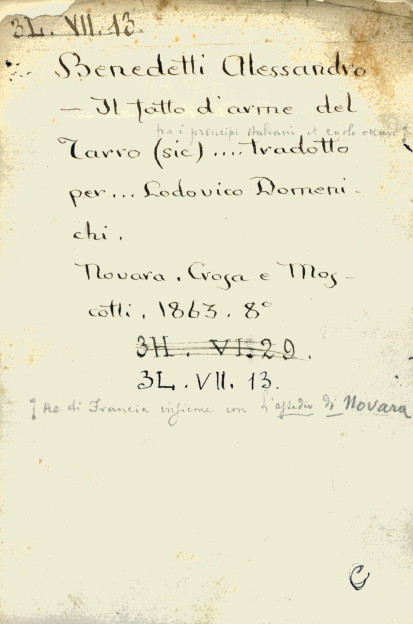 3L. VII. 13.
Benedetti Alessandro
— Il fatto d'arme del
tra i principi italiani et Carlo ottavo
Tarro (sic) .... tradotto
per... Lodovico Domeni-
chi.
Novara. Crosa e Mos-
cotti. 1863. 8°
3H. VI. 29.
3L. VII. 13.
Re di Francia insieme con l'assedio di Novara
C